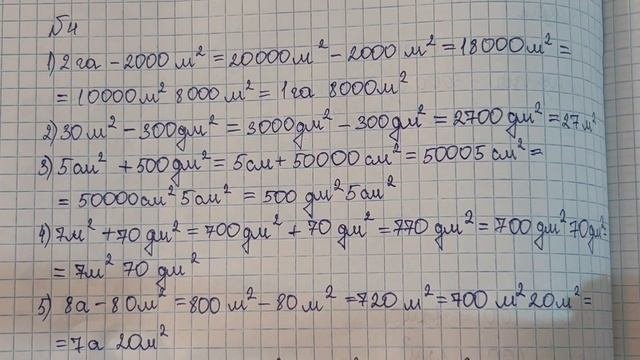 №4
1) 2 га - 2000 м² = 20000 м² - 2000 м² = 18000 м² =
= 10000 м² 8000 м² = 1 га 8000 м²
2) 30 м² - 300 дм² = 3000 дм² - 300 дм² = 2700 дм² = 27 м²
3) 5 см² + 500 дм² = 5 см + 50000 см² = 50005 см² =
= 50000 см² 5 см² = 500 дм² 5 см²
4) 7 м² + 70 дм² = 700 дм² + 70 дм² = 770 дм² = 700 дм² 70 дм² =
= 7 м² 70 дм²
5) 8 а - 80 м² = 800 м² - 80 м² = 720 м² = 700 м² 20 м² =
= 7 а 20 м²